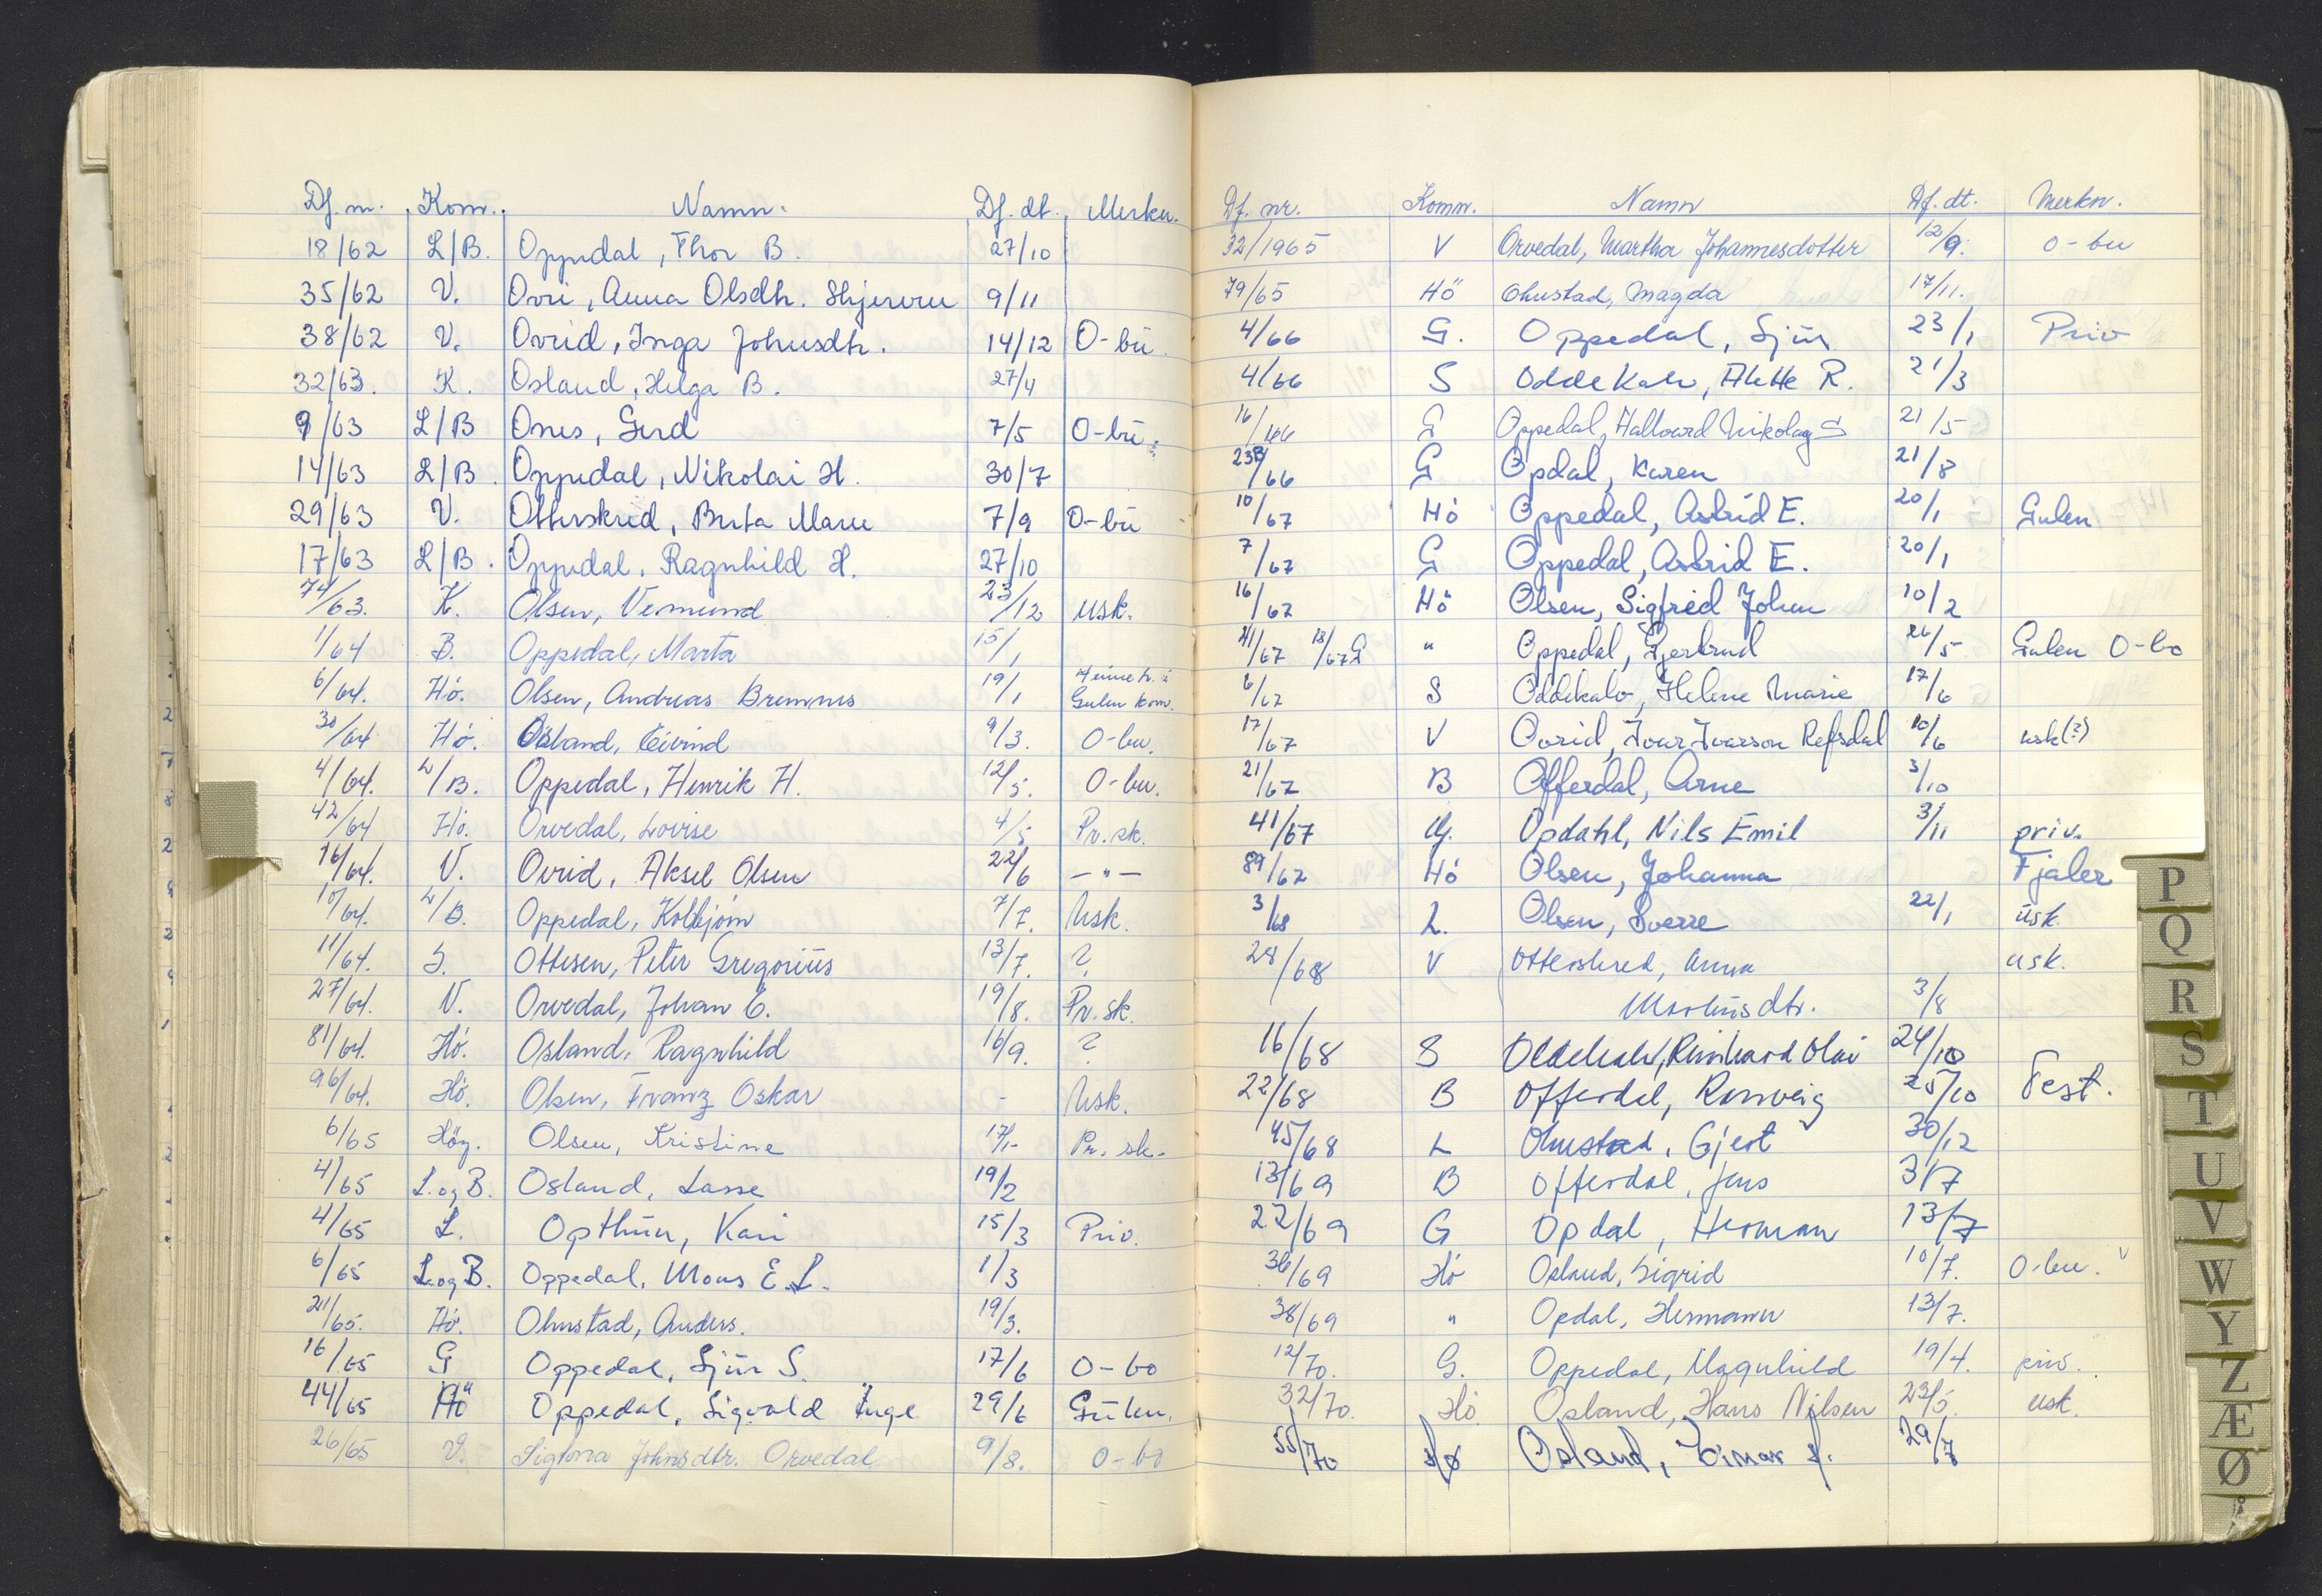 Df. nr. Kom. Namn. Df. dt. Merkn.
18/62 L/B. Oppedal, Thor B. 27/10
35/62 V. Ovri, Anna Olsdtr. 9/11
38/62 V. Ovrid, Inga Johnsdtr. 14/12 O-bu
32/63. K. Osland, Helga B. 27/4
9/63 L/B Ones, Gerd 7/5 O-bu.
14/63 L/B. Oppedal, Nikolai H. 30/7
29/63 V. Otterskred, Berta Marie 7/9 O-bu
17/63 L/B. Oppedal, Ragnhild H. 27/10
74/63. K. Olsen, Vermund 23/12 usk.
1/64 B. Oppedal, Marta 15/1
6/64. Hö. Olsen, Andreas Bremnes 19/1 Heimeh. i Gulen kom.
30/64 Hö. Osland, Eivind 9/3. O-bu.
4/64. L/B. Oppedal, Henrik H. 12/5. O-bu.
42/64 Hö. Orvedal, Lovise 4/5 Pr. sk.
16/64. V. Ovrid, Aksel Olsen 22/6 —"—
10/64. L/B. Oppedal, Kolbjörn 7/7. Usk.
11/64. S. Ottesen, Peter Gregorius 13/7. ?
27/64. V. Orvedal, Johan E. 19/8. Pr. sk.
81/64. Hö. Osland, Ragnhild 16/9. ?
96/64. Hö. Olsen, Franz Oskar - Usk.
6/65 Höy. Olsen, Kristine 17/1- Pr. sk.
4/65 L. og B. Osland, Lasse 19/2
4/65 L. Opthun, Kari 15/3 Priv.
6/65 L. og B. Oppedal, Mons E. L. 1/3
21/65. Hö. Ohnstad, Anders. 19/3.
16/65 G Oppedal, Sjur S. 17/6 O-bo
44/65 Hö Oppedal, Sigvald Inge 29/6 Gulen.
26/65 V. Johnsdtr. Orvedal 9/8. O-bo
Df. nr. Komm. Namn Df. dt. Merkn.
32/1965 V Orvedal, Martha Johannesdotter 12/9. O-bu
79/65 Hö Ohnstad, Magda 17/11.
4/66 G. Oppedal, Sjur 23/1 Priv
4/66 S Oddekalv, Alette R. 21/3
16/66 G Oppedal, Hallvard Nikolay S 21/5
23/66 G Opdal, Karen 21/8
10/67 Hö Oppedal, Astrid E. 20/1 Gulen
7/67 G Oppedal, Astrid E. 20/1
16/67 Hö Olsen, Sigfred Johan 10/2
41/67 13/67 G " Oppedal, Gjertrud 26/5 Gulen O-bo
6/67 S Oddekalv, Helene Marie 17/6
17/67 V Ovrid, Ivar Ivarson Refsdal 10/6 usk(?)
21/67 B Offerdal, Arne 3/10
41/67 G. Opdahl, Nils Emil 3/11 priv.
89/67 Hö Olsen, Johanna Fjaler
3/68 L. Olsen, Sverre 22/1 usk.
28/68 V Otterskred, Anna usk.
Markusdtr. 3/8
16/68 S Oddekalv, Reinhard Olai 24/10
22/68 B Offerdal, Rannveig 25/10 Test.
45/68 L Ohnstad, Gjert 30/12
13/69 B Offerdal, Jens 3/7
22/69 G Opdal, Herman 13/7
36/69 Hö Osland, Sigrid 10/7. O-bu.
38/69 " Opdal, Hermann 13/7.
12/70. G. Oppedal, Magnhild 19/4. priv.
32/70. Hö. Osland, Hans Nilsen 23/5. usk.
55/70 Hø Osland, Einar 29/7
P
Q
R
S
T
U
V
W
Y
Z
Æ
Ø
Å